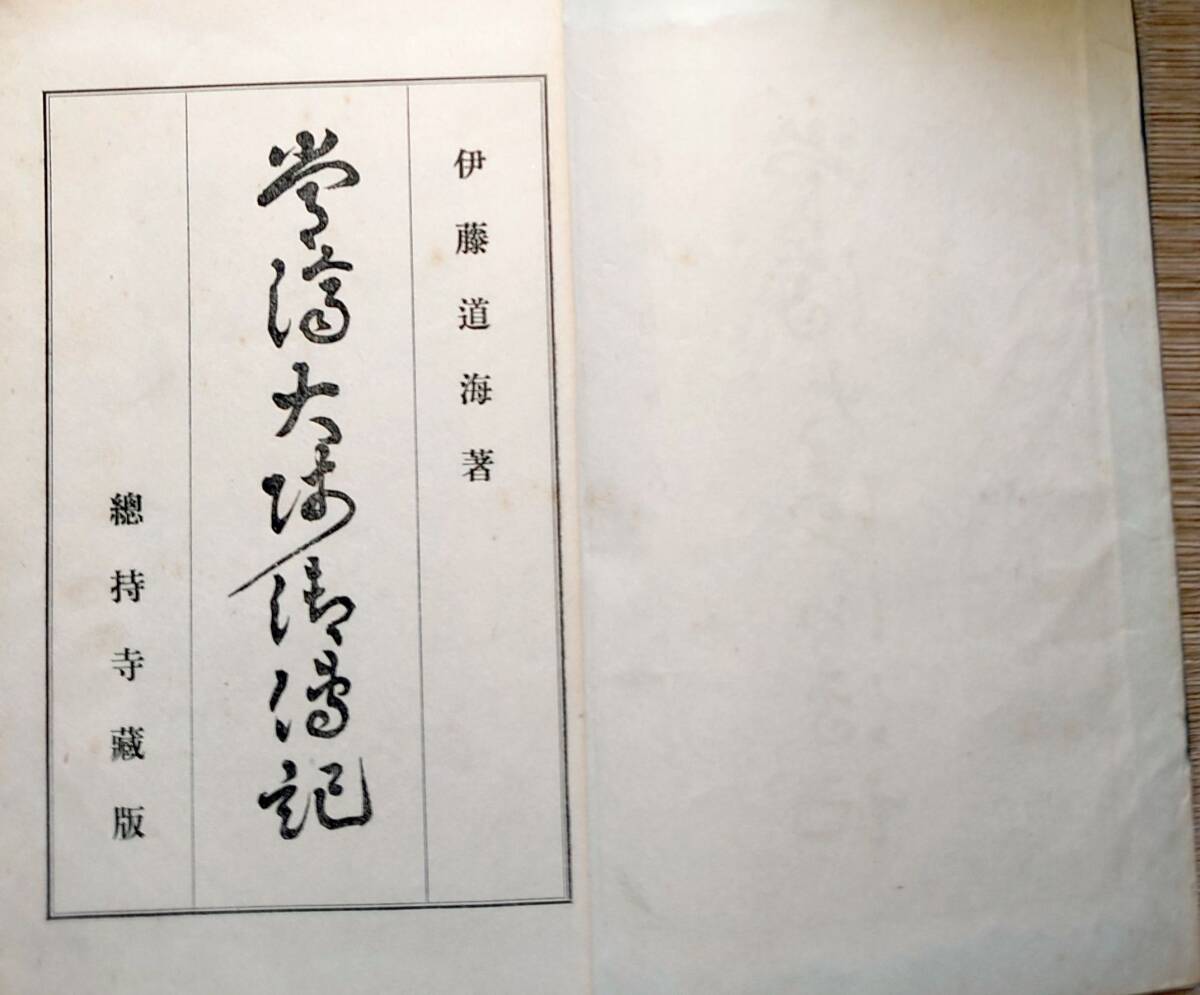 伊藤道海著
常濟大師御傳記
總持寺藏版